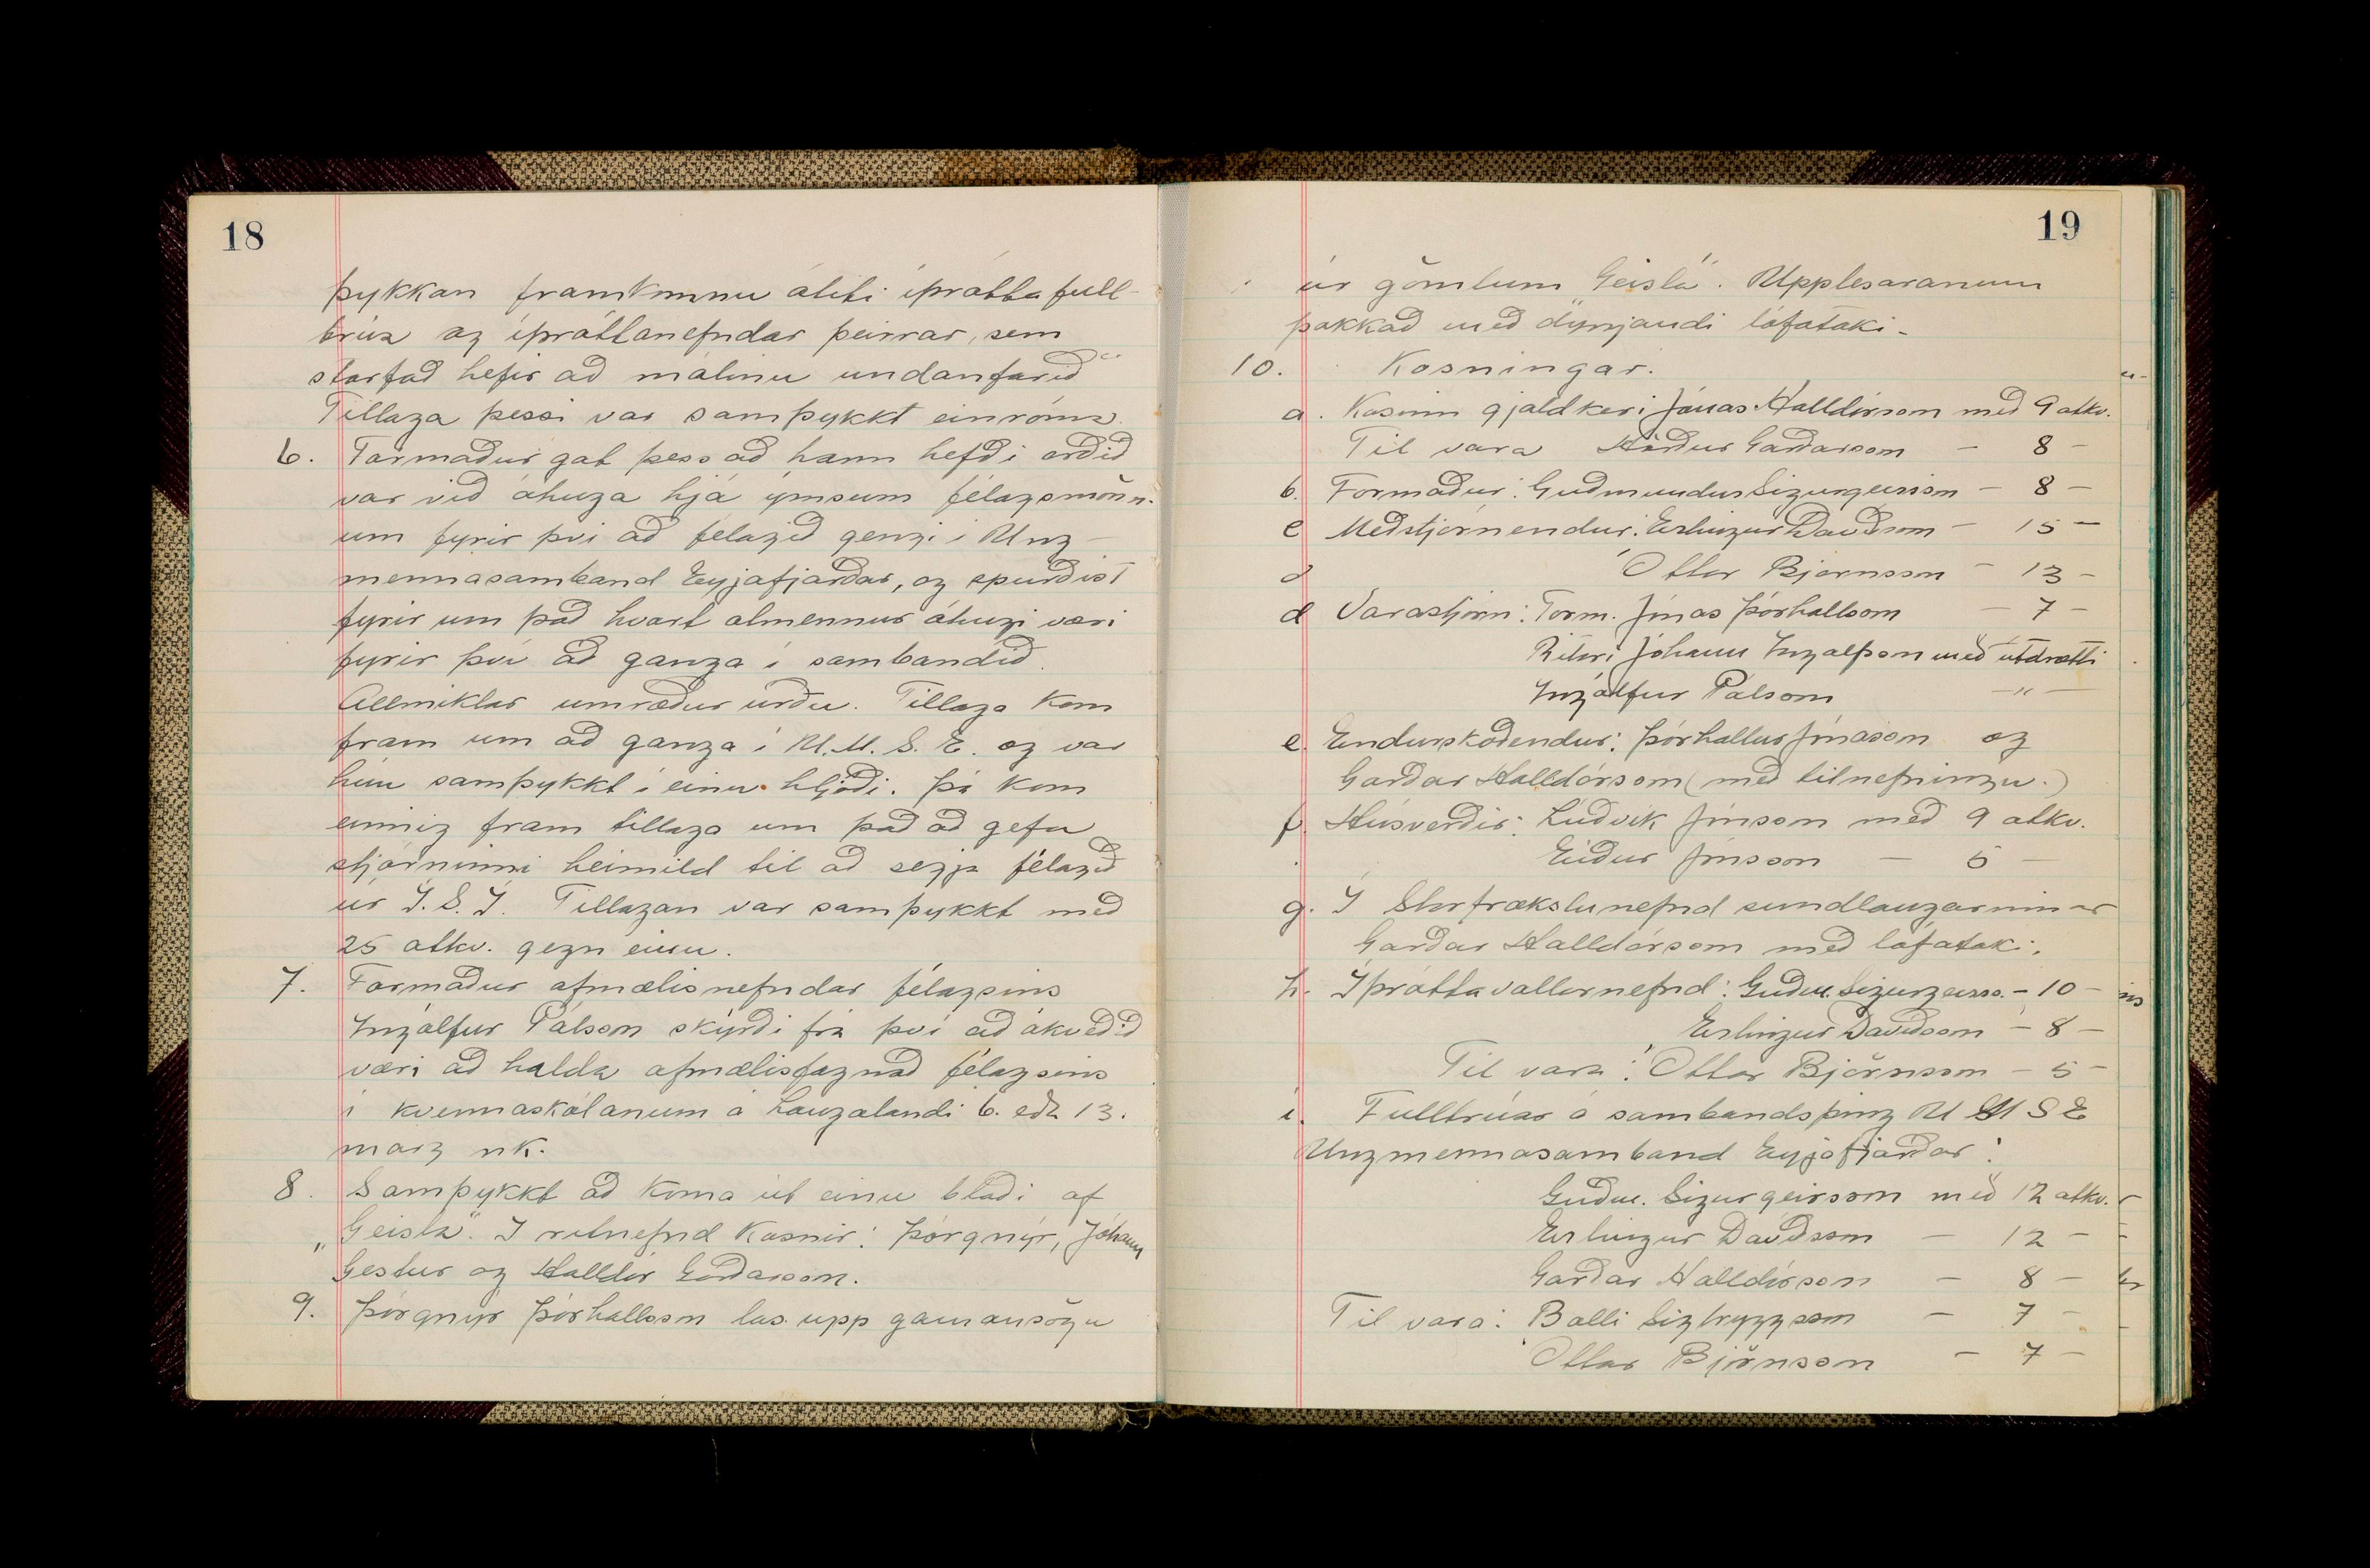 18
þykkan framkomnu áliti íþróttafull-
trúa og íþróttanefndar þeirrar, sem
starfað hefir að málinu undanfarið"
Tillaga þessi var samþykkt einróma.
6. Formaður gat þess að hann hefði orðið
var við áhuga hjá ýmsum félagsmönn-
um fyrir því að félagið gengi í Ung-
mennasamband Eyjafjarðar, og spurðist
fyrir um það hvort almennur áhugi væri
fyrir því að ganga í sambandið.
Allmiklar umræður urðu. Tillaga kom
fram um að ganga í U.M.S.E. og var
hún samþykkt í einu hljóði. Þá kom
einnig fram tillaga um það að gefa
stjórninni heimild til að segja félagið
úr Í.S.Í. Tillagan var samþykkt með
25 atkv. gegn einu.
7. Formaður afmælisnefndar félagsins
Ingólfur Pálsson skýrði frá því að ákveðið
væri að halda afmælisfagnað félagsins
í kvennaskólanum á Laugalandi 6. eða 13.
marz nk.
8. Samþykkt að koma út einu blaði af
„Geisla". Í ritnefnd kosnir: Þórgnýr, Jóhann
Gestur og Halldór Garðarsson.
9. Þórgnýr Þórhallsson las upp gamansögu
19
úr gömlum „Geisla". Upplesaranum
þakkað með dynjandi lófataki.
10. Kosningar.
a. Kosinn gjaldkeri Jónas Halldórsson með 9 atkv.
Til vara Hörður Garðarsson - 8 -
b. Formaður: Guðmundur Sigurgeirsson - 8 -
c Meðstjórnendur: Erlingur Davíðsson - 15 -
d Óttar Björnsson - 13 -
d Varastjórn: Form. Jónas Þórhallsson - 7 -
Ritari Jóhann Ingólfsson með útdrætti
Ingólfur Pálsson - " -
e. Endurskoðendur: Þórhallur Jónasson og
Garðar Halldórsson (með tilnefningu.)
f. Húsverðir: Lúðvík Jónsson með 9 atkv.
Eiður Jónsson - 5 -
g. Í Starfrækslunefnd sundlaugarinnar
Garðar Halldórsson með lófataki.
h. Íþróttavallarnefnd: Guðm. Sigurgeirss. - 10 -
Erlingur Davíðsson - 8 -
Til vara: Óttar Björnsson - 5 -
i. Fulltrúar á sambandsþing U M S E
Ungmennasamband Eyjafjarðar:
Guðm. Sigurgeirsson með 12 atkv.
Erlingur Davíðsson - 12 -
Garðar Halldórsson - 8 -
Til vara: Balli Sigtryggsson - 7 -
Óttar Björnsson - 7 -